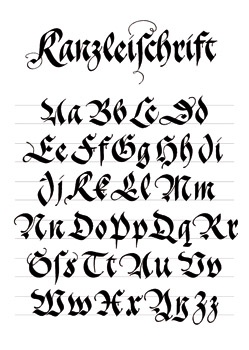 Kanzleiſchrift
Aa Bb Cc Dd
Ee Ff Gg Hh Ii
Jj Kk Ll Mm
Nn Oo Pp Qq Rr
Sſs Tt Uu Vv
Ww Xx Yy Zz